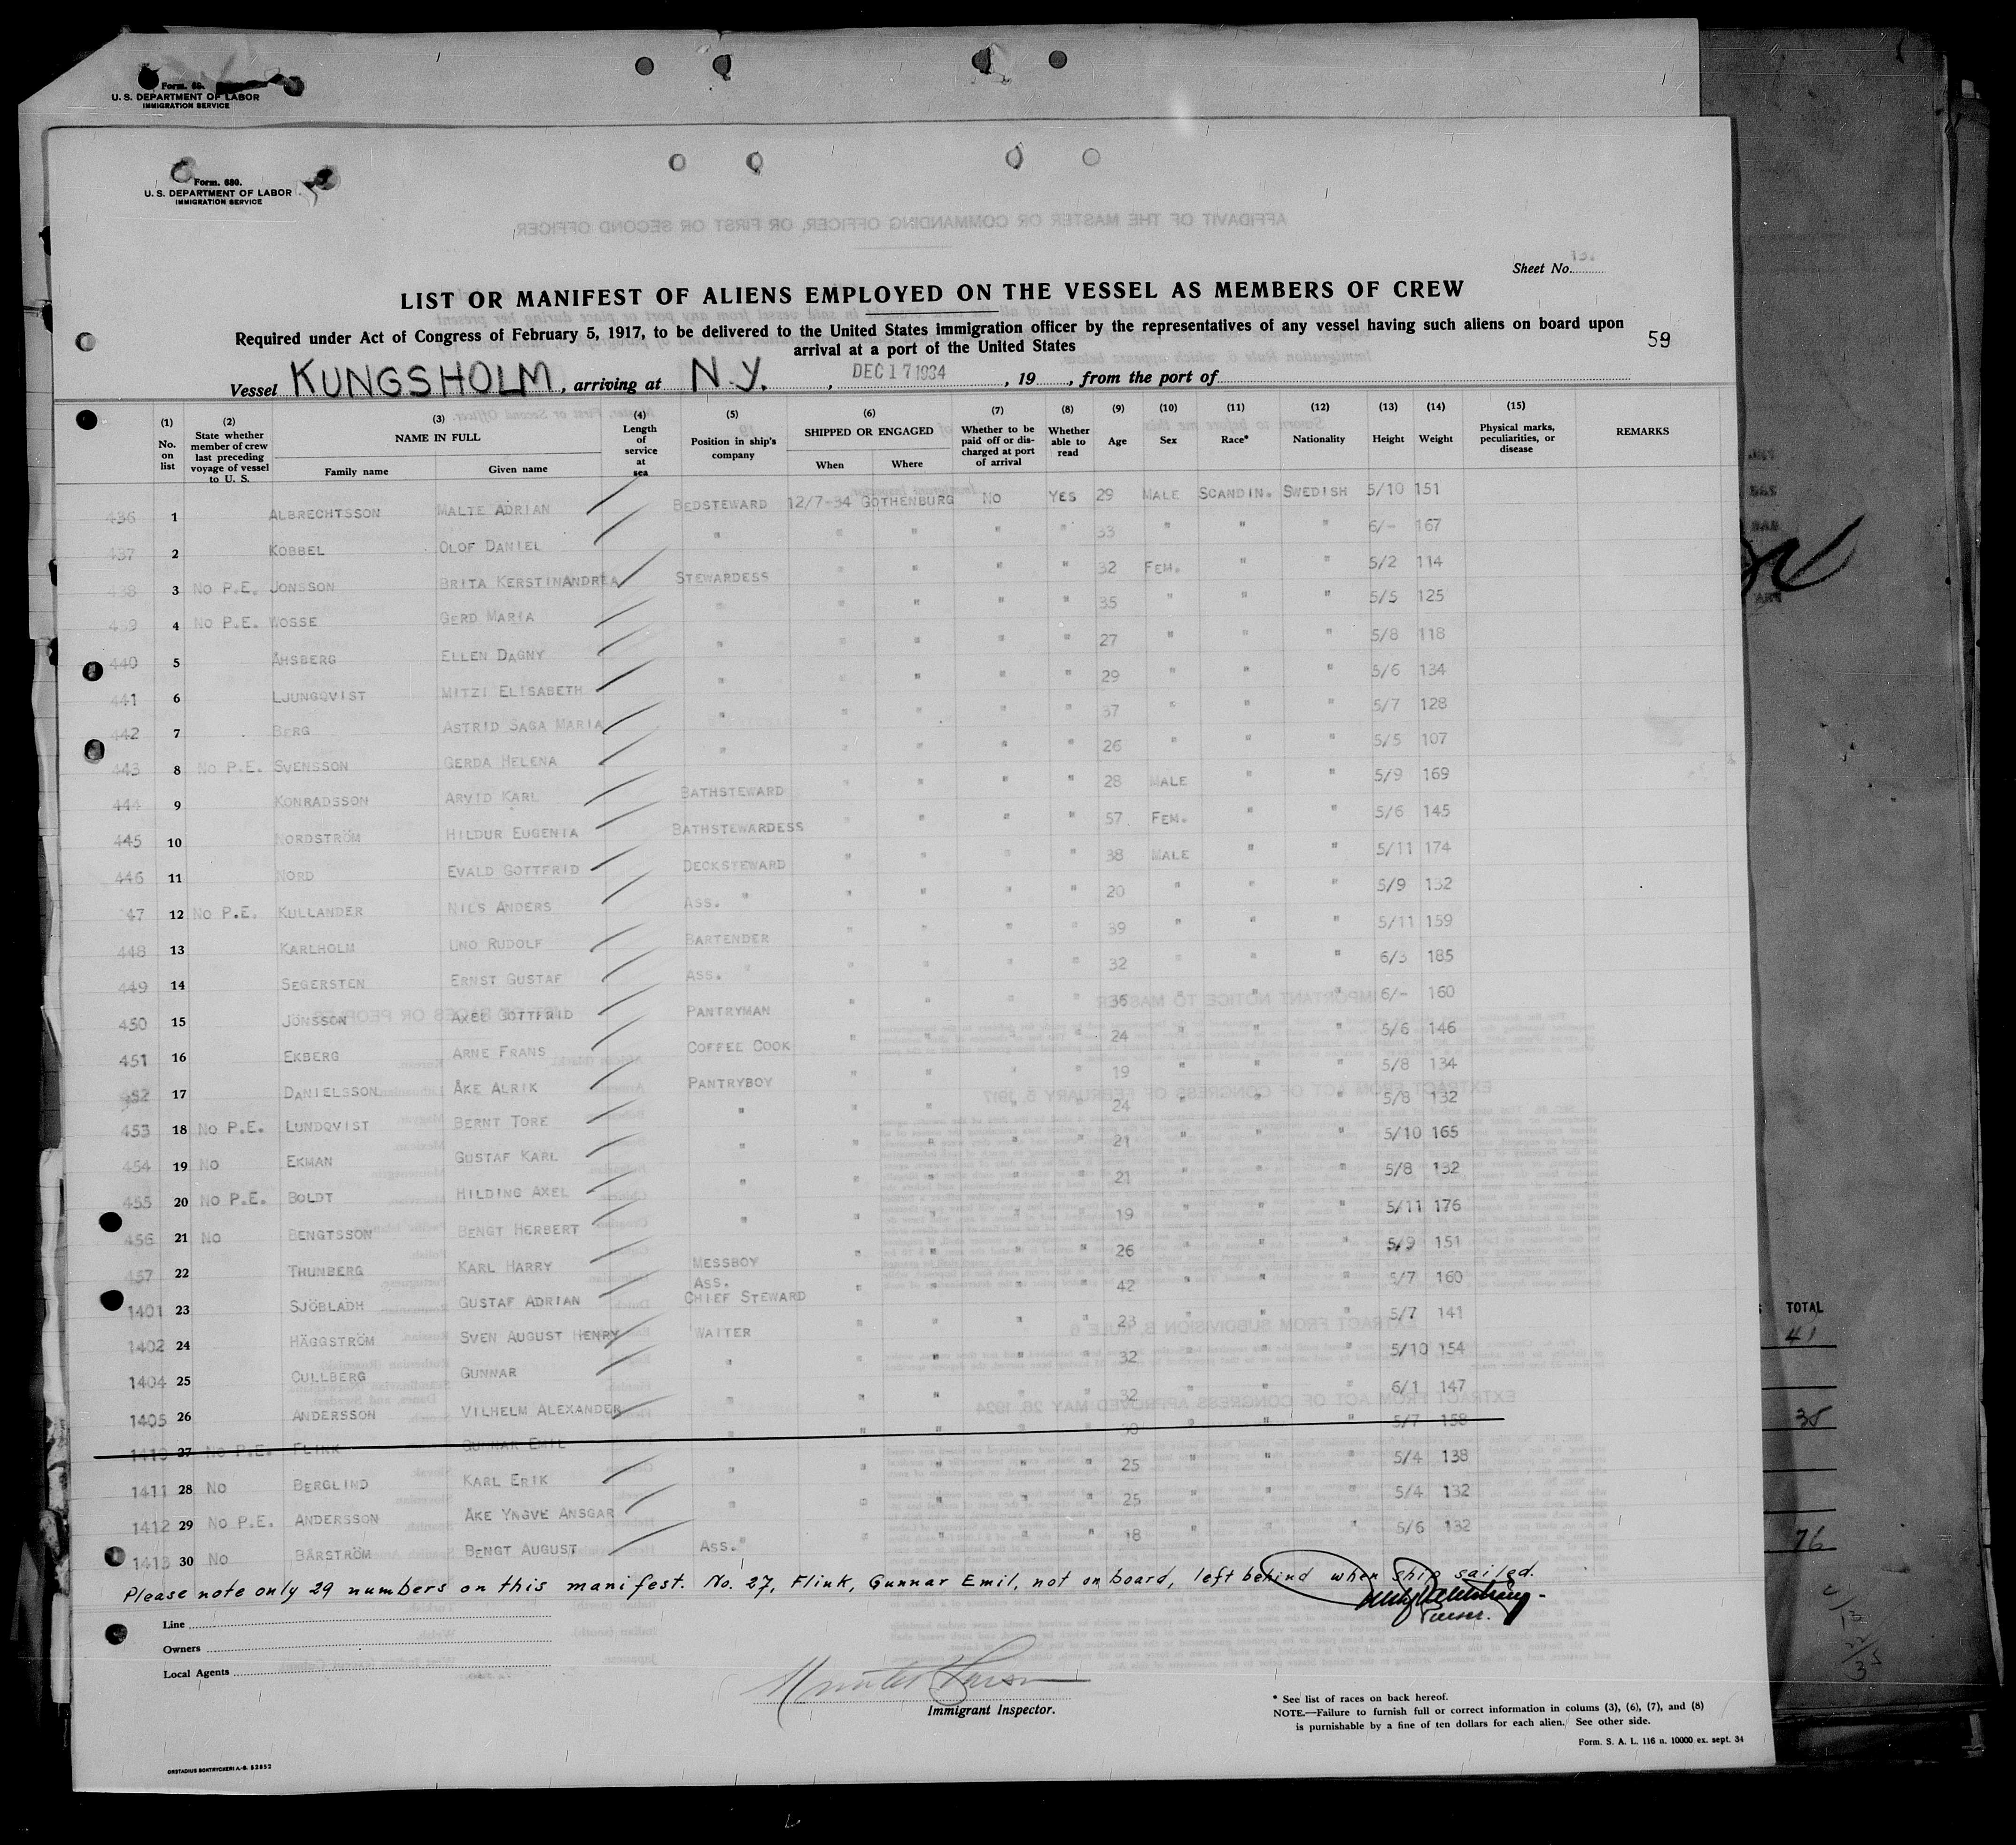 Form. 680.
U. S. DEPARTMENT OF LABOR
IMMIGRATION SERVICE
Form. 680.
U. S. DEPARTMENT OF LABOR
IMMIGRATION SERVICE
Sheet No.
LIST OR MANIFEST OF ALIENS EMPLOYED ON THE VESSEL AS MEMBERS OF CREW
Required under Act of Congress of February 5, 1917, to be delivered to the United States immigration officer by the representatives of any vessel having such aliens on board upon
arrival at a port of the United States
59
Vessel KUNGSHOLM, arriving at N.Y., DEC 17 1934, 19, from the port of
(1) No. on list (2) State whether member of crew last preceding voyage of vessel to U. S. (3) NAME IN FULL Family name Given name (4) Length of service at sea (5) Position in ship's company (6) SHIPPED OR ENGAGED When Where (7) Whether to be paid off or discharged at port of arrival (8) Whether able to read (9) Age (10) Sex (11) Race* (12) Nationality (13) Height (14) Weight (15) Physical marks, peculiarities, or disease REMARKS
436 1 ALBRECHTSSON MALTE ADRIAN BEDSTEWARD 12/7-34 GOTHENBURG NO YES 29 MALE SCANDIN. SWEDISH 5/10 151
437 2 KOBBEL OLOF DANIEL " " " " " 33 " " " 6/- 167
438 3 NO P.E. JONSSON BRITA KERSTINANDREA STEWARDESS " " " " 32 FEM. " " 5/2 114
439 4 NO P.E. WOSSE GERD MARIA " " " " " 35 " " " 5/5 125
440 5 ÅHSBERG ELLEN DAGNY " " " " " 27 " " " 5/8 118
441 6 LJUNGQVIST MITZI ELISABETH " " " " " 29 " " " 5/6 134
442 7 BERG ASTRID SAGA MARIA " " " " " 37 " " " 5/7 128
443 8 NO P.E. SVENSSON GERDA HELENA " " " " " 26 " " " 5/5 107
444 9 KONRADSSON ARVID KARL BATHSTEWARD " " " " 28 MALE " " 5/9 169
445 10 NORDSTRÖM HILDUR EUGENIA BATHSTEWARDESS " " " " 57 FEM. " " 5/6 145
446 11 NORD EVALD GOTTFRID DECKSTEWARD " " " " 38 MALE " " 5/11 174
47 12 NO P.E. KULLANDER NILS ANDERS ASS. " " " " " 20 " " " 5/9 132
448 13 KARLHOLM UNO RUDOLF BARTENDER " " " " 39 " " " 5/11 159
449 14 SEGERSTEN ERNST GUSTAF ASS. " " " " " 32 " " " 6/3 185
450 15 JÖNSSON AXEL GOTTFRID PANTRYMAN " " " " 36 " " " 6/- 160
451 16 EKBERG ARNE FRANS COFFEE COOK " " " " 24 " " " 5/6 146
452 17 DANIELSSON ÅKE ALRIK PANTRYBOY " " " " 19 " " " 5/8 134
453 18 NO P.E. LUNDQVIST BERNT TORE " " " " " 24 " " " 5/8 132
454 19 NO EKMAN GUSTAF KARL " " " " " 21 " " " 5/10 165
455 20 NO P.E. BOLDT HILDING AXEL " " " " " 21 " " " 5/8 132
456 21 NO BENGTSSON BENGT HERBERT " " " " " 19 " " " 5/11 176
457 22 THUNBERG KARL HARRY MESSBOY " " " " 26 " " " 5/9 151
1401 23 SJÖBLADH GUSTAF ADRIAN ASS. CHIEF STEWARD " " " " 42 " " " 5/7 160
1402 24 HÄGGSTRÖM SVEN AUGUST HENRY WAITER " " " " 23 " " " 5/7 141
1404 25 CULLBERG GUNNAR " " " " " 32 " " " 5/10 154
1405 26 ANDERSSON VILHELM ALEXANDER " " " " " 32 " " " 6/1 147
1410 27 NO P.E. FLINK GUNNAR EMIL " " " " 30 " " " 5/7 158
1411 28 NO BERGLIND KARL ERIK " " " " " 25 " " " 5/4 138
1412 29 NO P.E. ANDERSSON ÅKE YNGVE ANSGAR " " " " " 25 " " " 5/4 132
1413 30 NO BÄRSTRÖM BENGT AUGUST ASS. " " " " " 18 " " " 5/6 132
Please note only 29 numbers on this manifest. No. 27, Flink, Gunnar Emil, not on board, left behind when ship sailed.
Purser.
Line
Owners
Local Agents
Immigrant Inspector.
* See list of races on back hereof.
NOTE.—Failure to furnish full or correct information in colums (3), (6), (7), and (8)
is punishable by a fine of ten dollars for each alien. See other side.
Form. S. A. L. 116 n. 10000 ex. sept. 34
ORSTADIUS BOKTRYCKERI A.-B. 52852
TOTAL
41
35
76